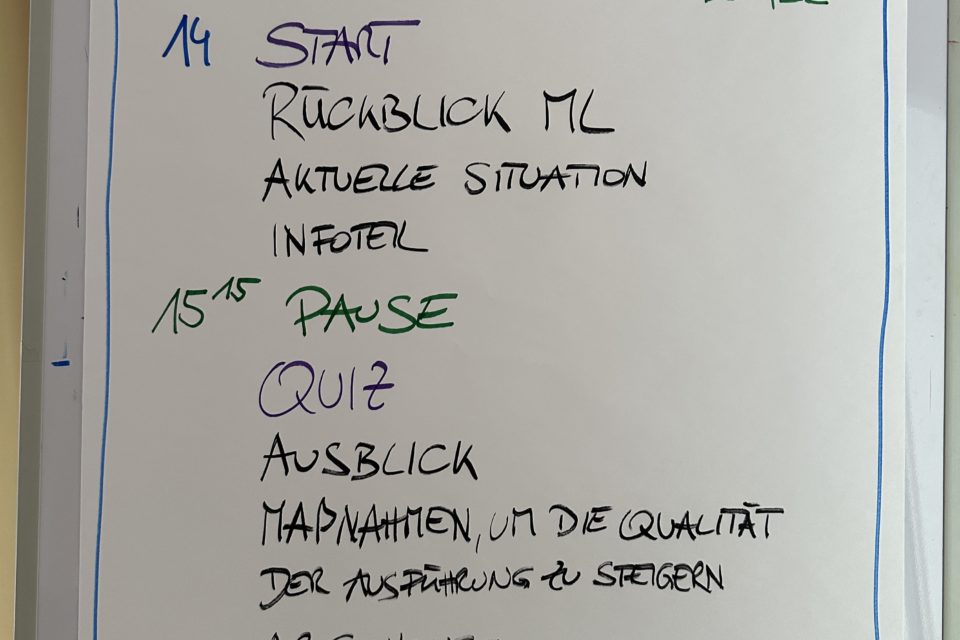 14 START
RÜCKBLICK ML
AKTUELLE SITUATION
INFOTEIL
15 15 PAUSE
QUIZ
AUSBLICK
MAßNAHMEN, UM DIE QUALITÄT
DER AUSFÜHRUNG ZU STEIGERN